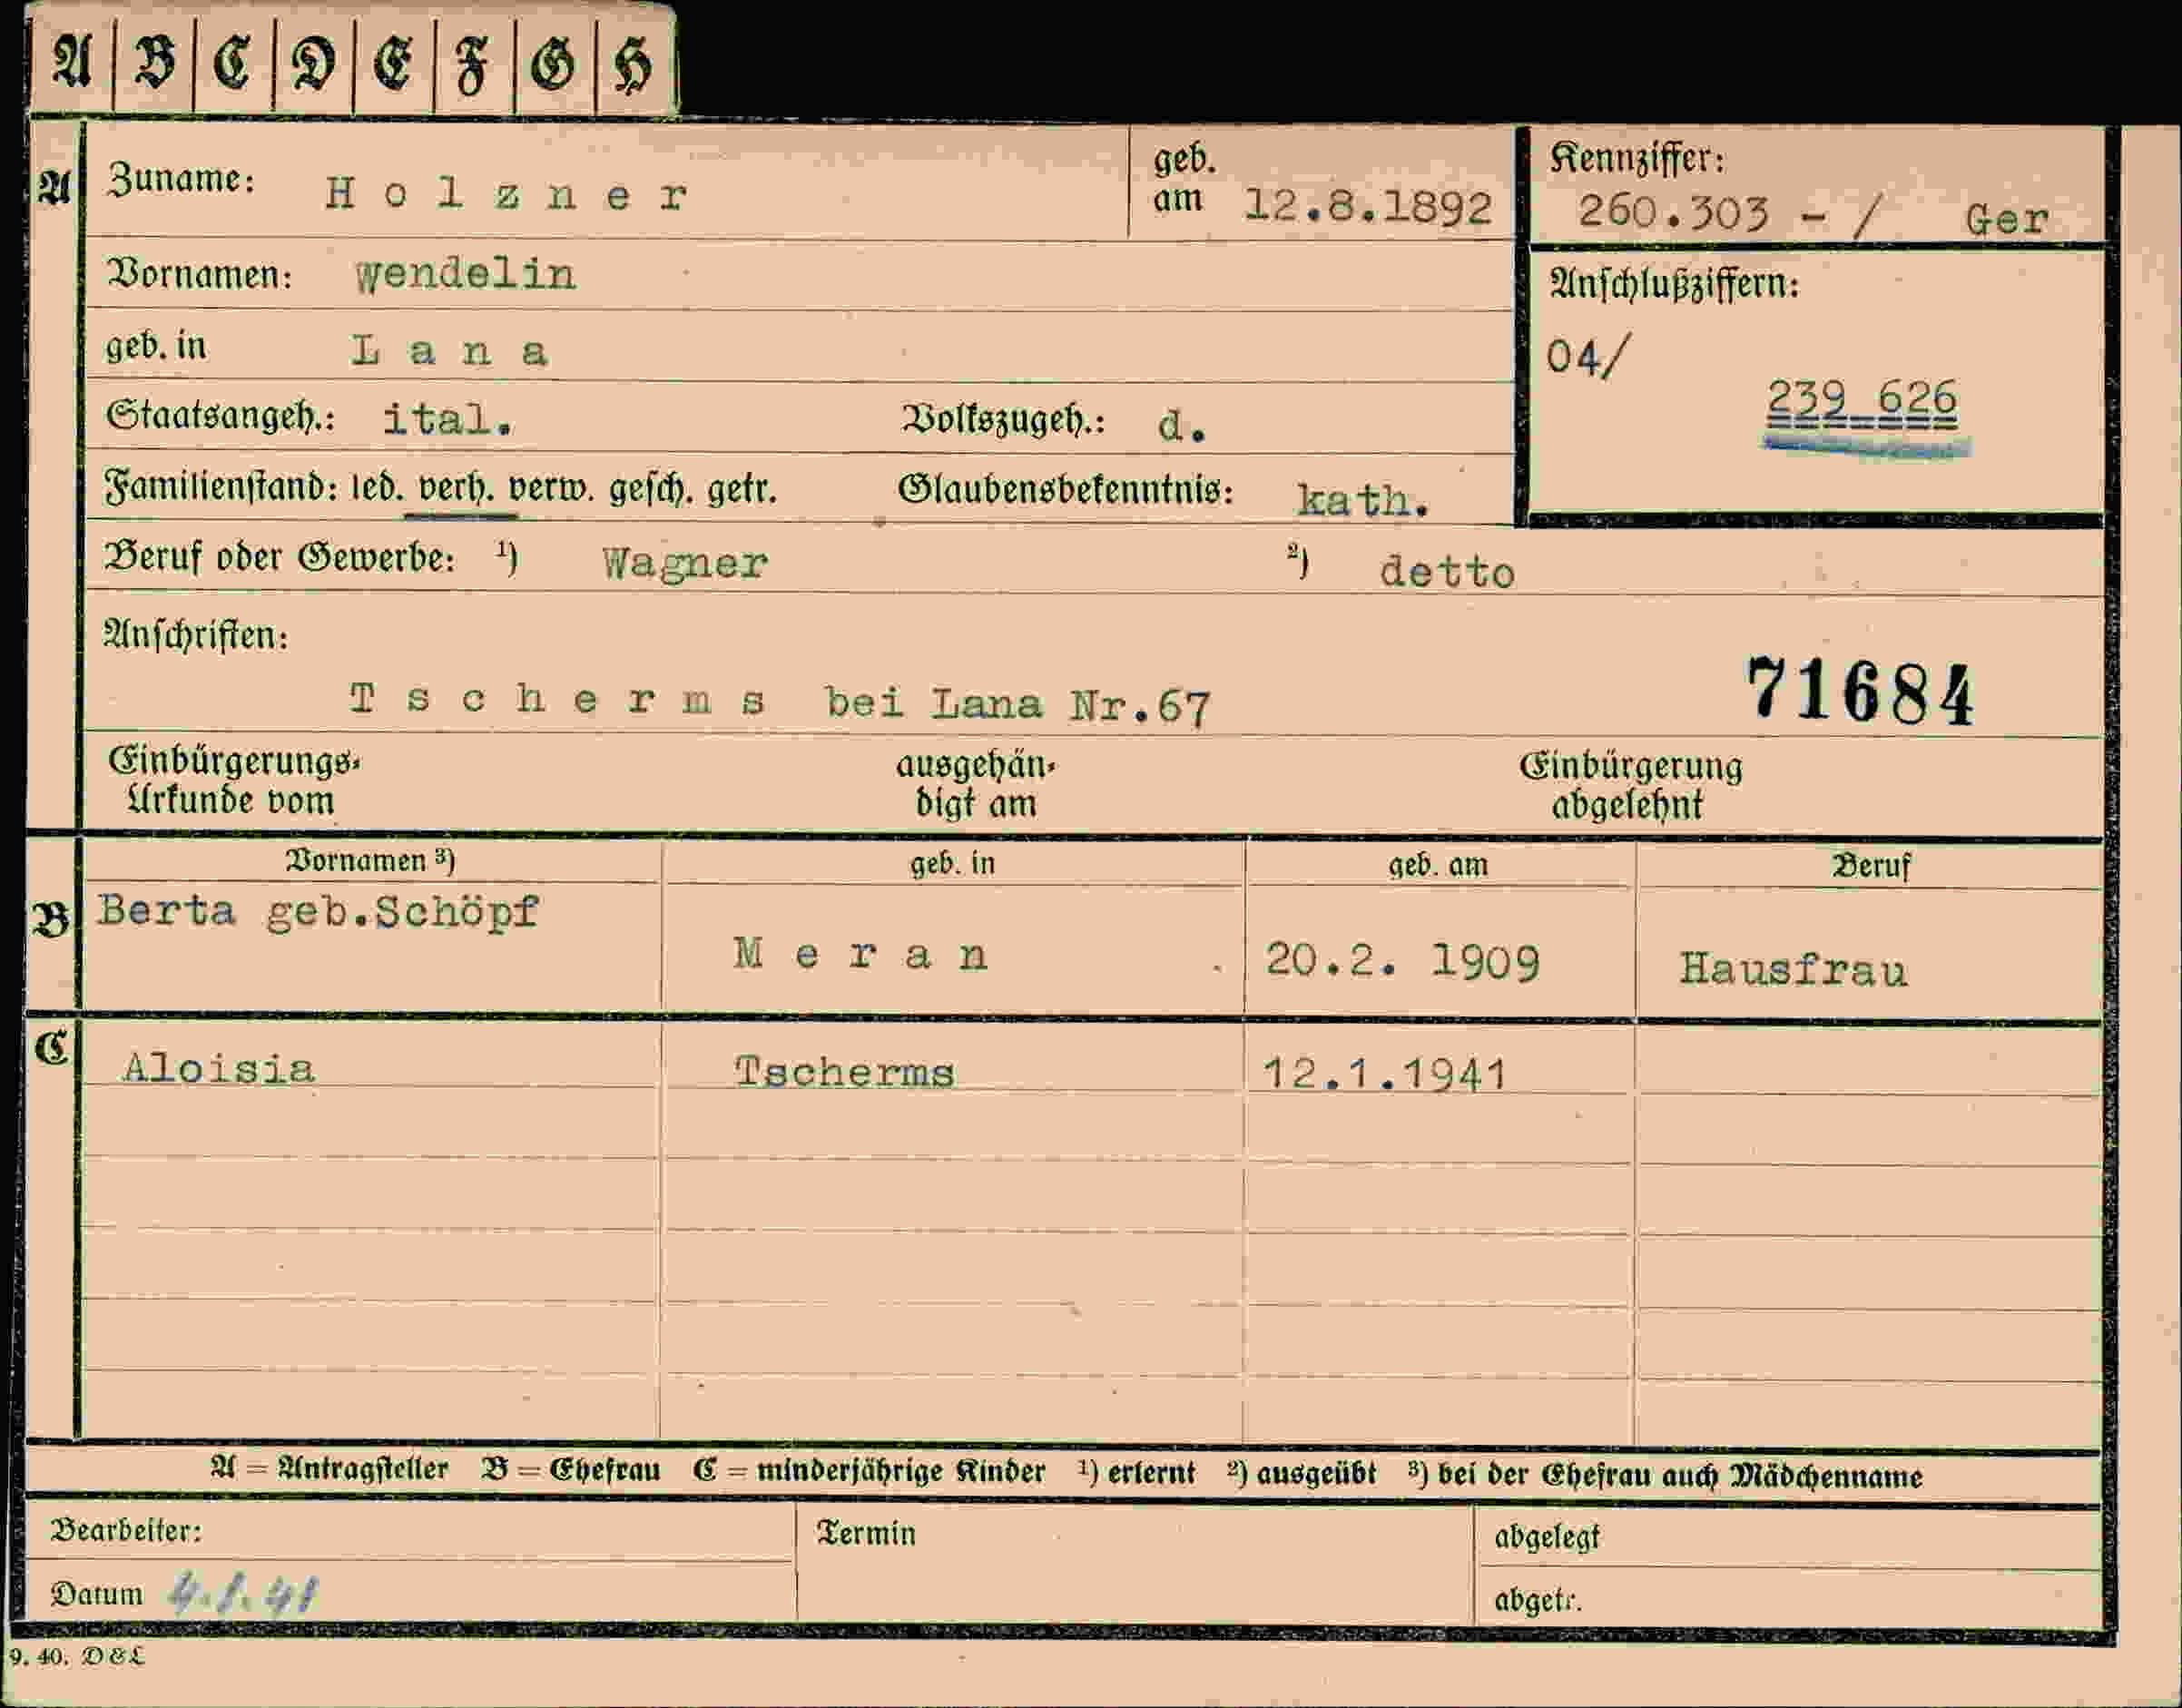 A B C D E F G H
A Zuname: Holzner geb. am 12.8.1892 Kennziffer: 260.303 - / Ger
Vornamen: wendelin Anschlußziffern:
geb. in Lana 04/
239 626
Staatsangeh.: ital. Volkszugeh.: d.
Familienstand: led. verh. verw. gesch. getr. Glaubensbekenntnis: kath.
Beruf oder Gewerbe: ¹) Wagner ²) detto
Anschriften:
Tscherms bei Lana Nr.67 71684
Einbürgerungs- ausgehän- Einbürgerung
Urkunde vom digt am abgelehnt
Vornamen ³) geb. in geb. am Beruf
B Berta geb.Schöpf
Meran 20.2. 1909 Hausfrau
C Aloisia Tscherms 12.1.1941
A = Antragsteller B = Ehefrau C = minderjährige Kinder ¹) erlernt ²) ausgeübt ³) bei der Ehefrau auch Mädchenname
Bearbeiter: Termin abgelegt
Datum abgetr.
9. 40. D&L